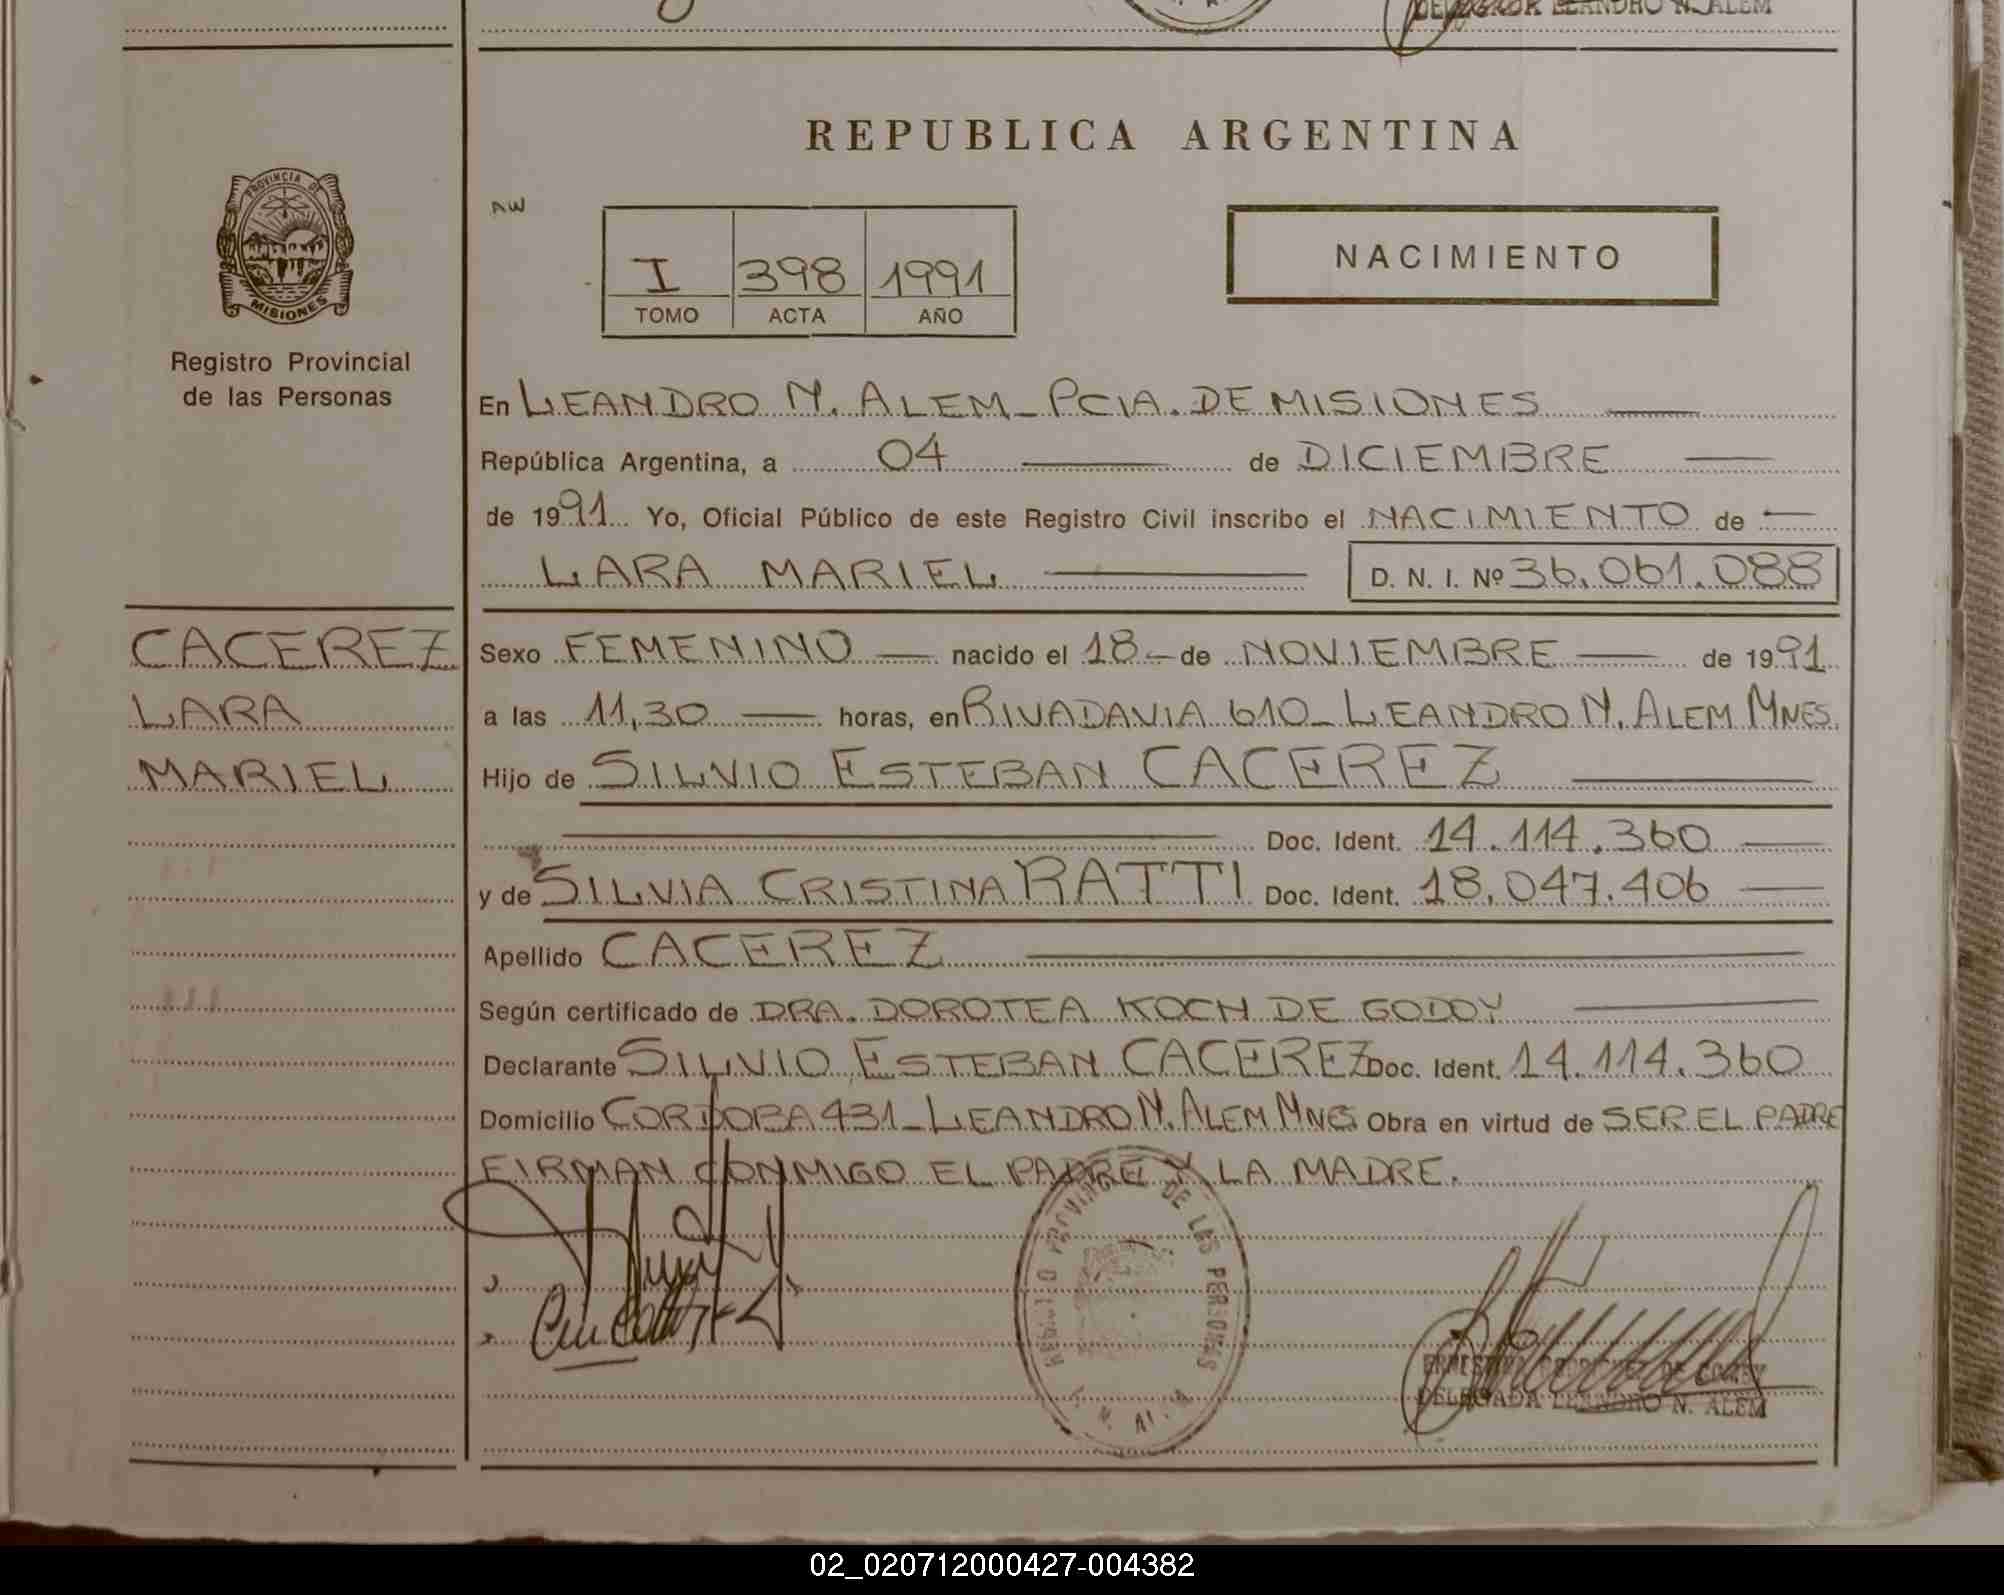 DELEGADA LEANDRO N. ALEM
REPUBLICA ARGENTINA
PROVINCIA DE
MISIONES
Registro Provincial
de las Personas
AW
I 398 1991
TOMO ACTA AÑO
NACIMIENTO
En LEANDRO N. ALEM - PCIA. DE MISIONES
República Argentina, a 04 de DICIEMBRE
de 1991 Yo, Oficial Público de este Registro Civil inscribo el NACIMIENTO de
LARA MARIEL D. N. I. Nº 36.061.088
CACEREZ
LARA
MARIEL
Sexo FEMENINO nacido el 18 - de NOVIEMBRE de 1991
a las 11,30 horas, en RIVADAVIA 610 - LEANDRO N. ALEM MNES.
Hijo de SILVIO ESTEBAN CACEREZ
Doc. Ident. 14.114.360
y de SILVIA CRISTINA RATTI Doc. Ident. 18.047.406
Apellido CACEREZ
Según certificado de DRA. DOROTEA KOCH DE GODOY
Declarante SILVIO ESTEBAN CACEREZ Doc. Ident. 14.114.360
Domicilio CORDOBA 431 - LEANDRO N. ALEM MNES Obra en virtud de SER EL PADRE
FIRMAN CONMIGO EL PADRE Y LA MADRE.
DE LAS PERSONAS
DELEGADA LEANDRO N. ALEM
02_020712000427-004382